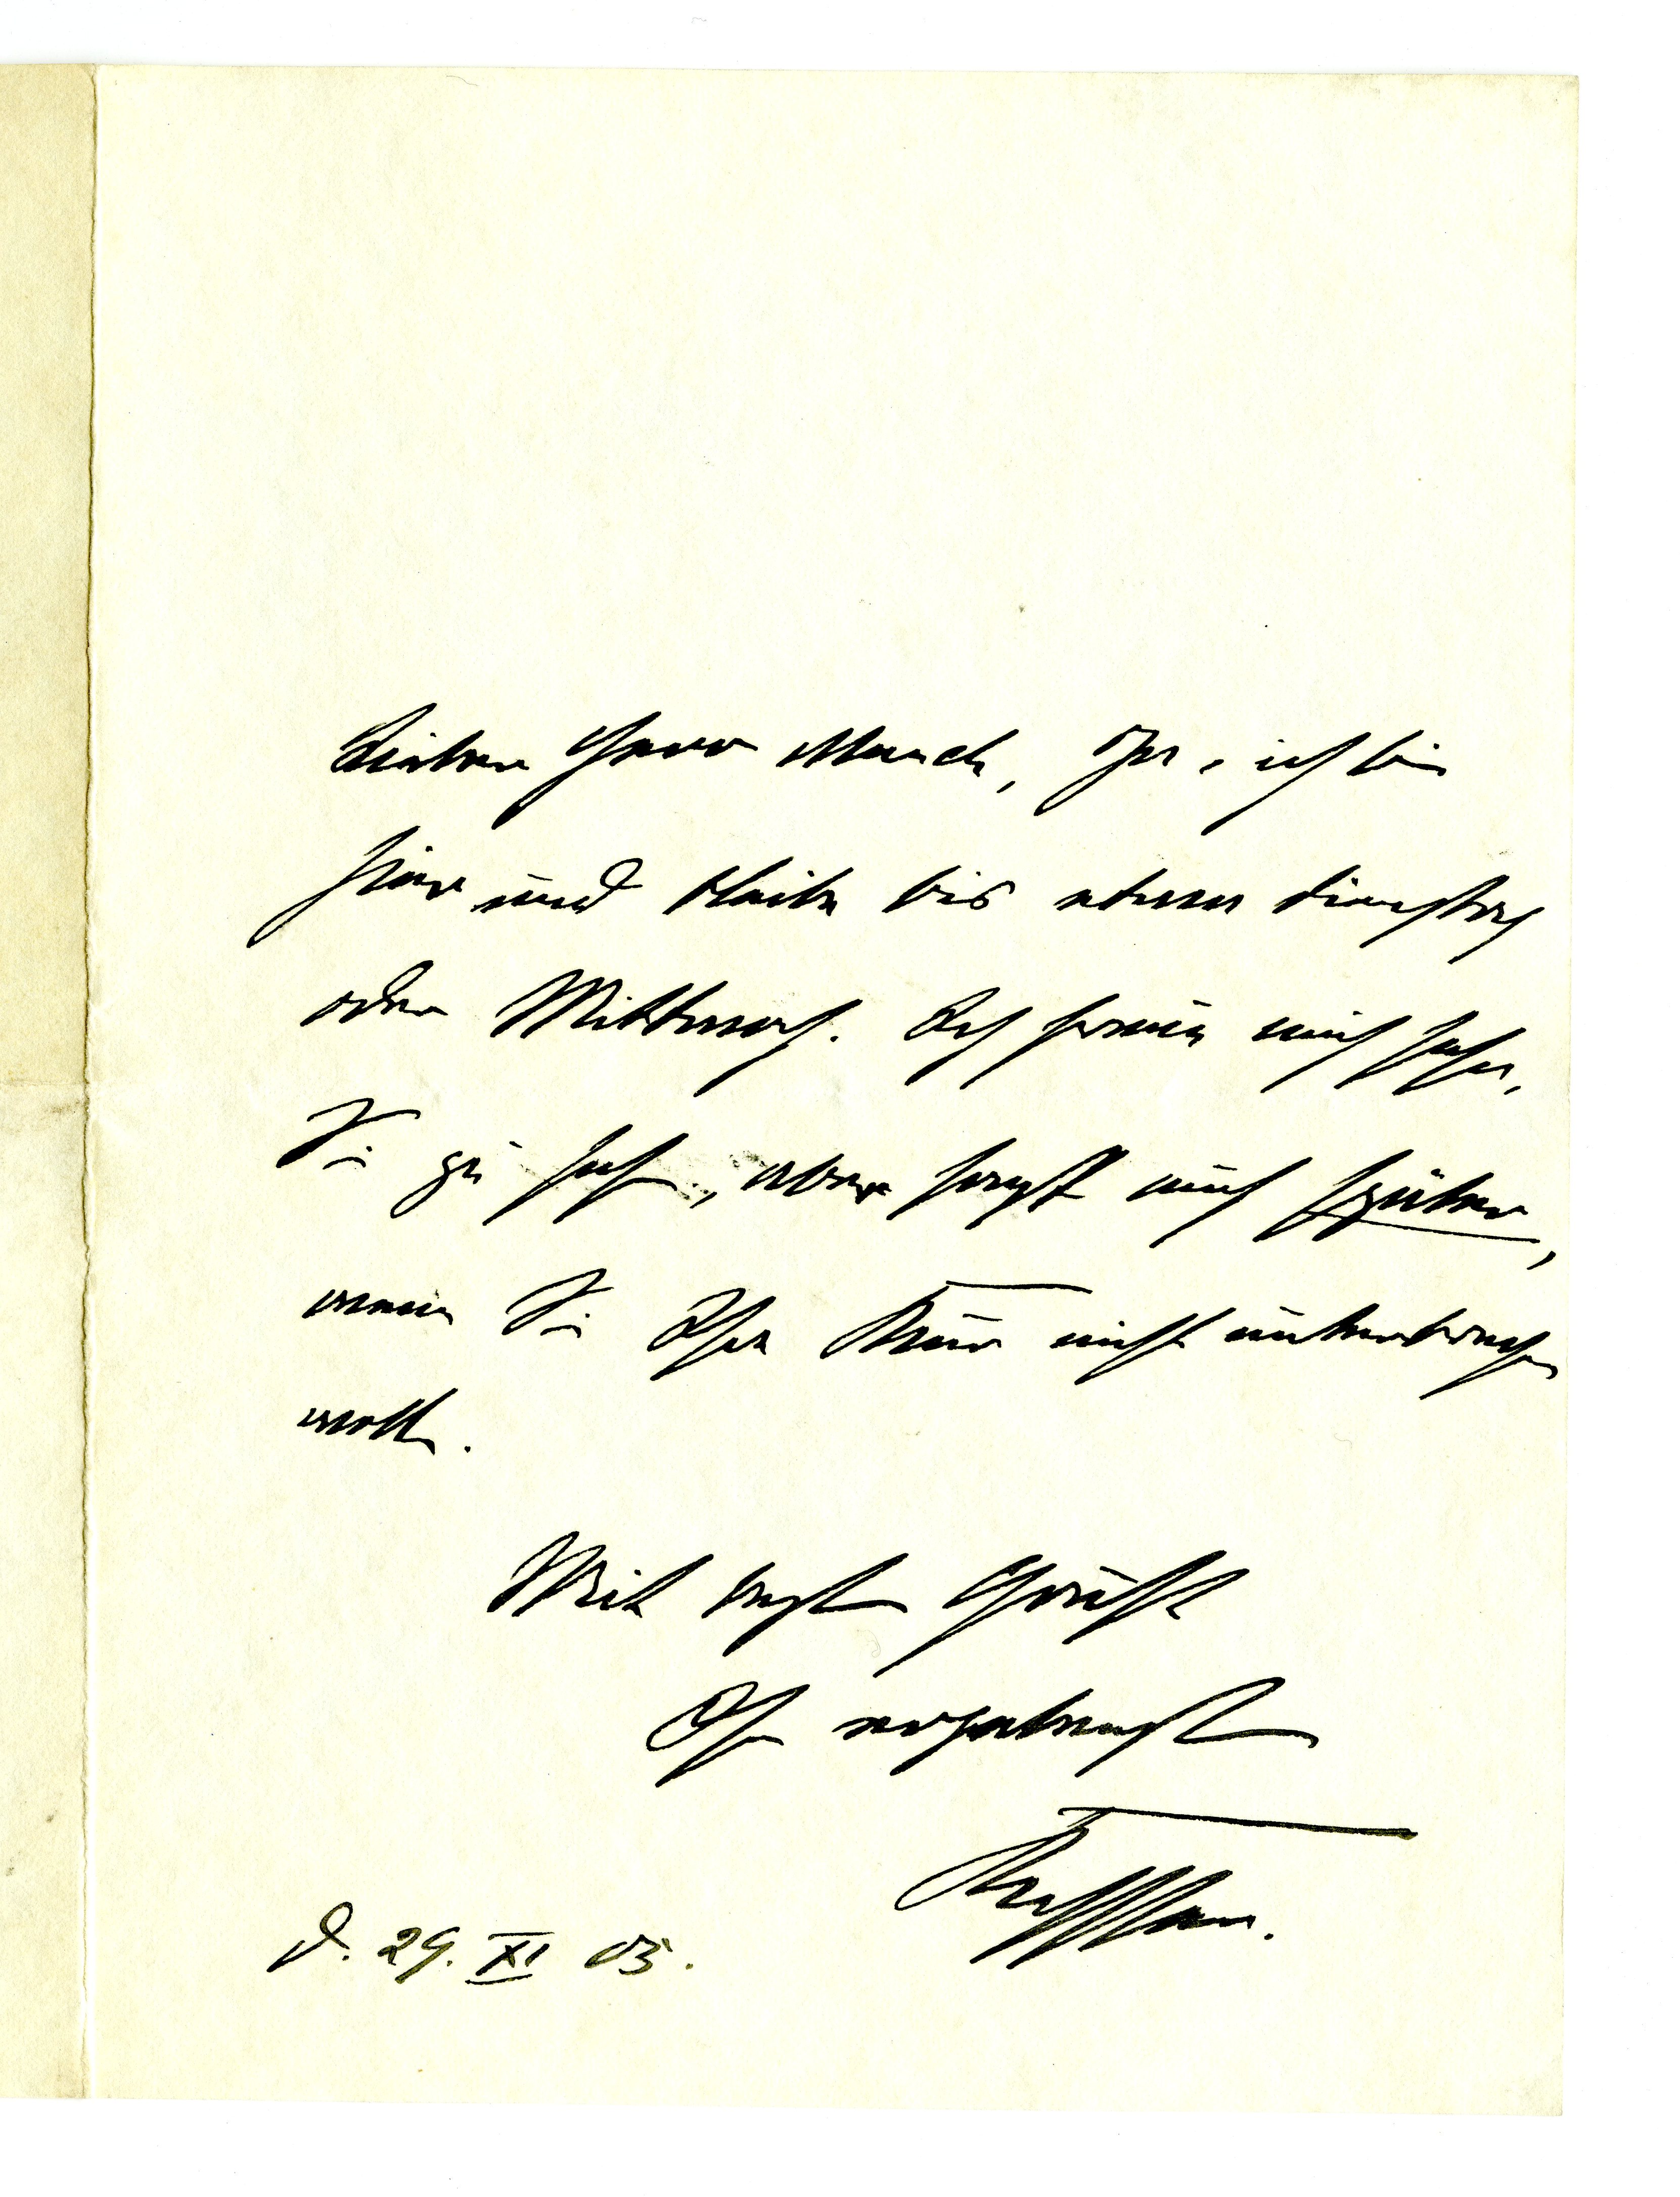 Lieber Herr Munch, Ja, ich bin
hier und bleibe bis etwa Dienstag
oder Mittwoch. Ich freue mich sehr,
Sie zu sehen, aber sonst auch später,
wenn Sie Ihre Kur nicht unterbrechen
wollen.
Mit besten Grüssen
Ihr ergebenster
Kessler.
d. 29. XI 05.